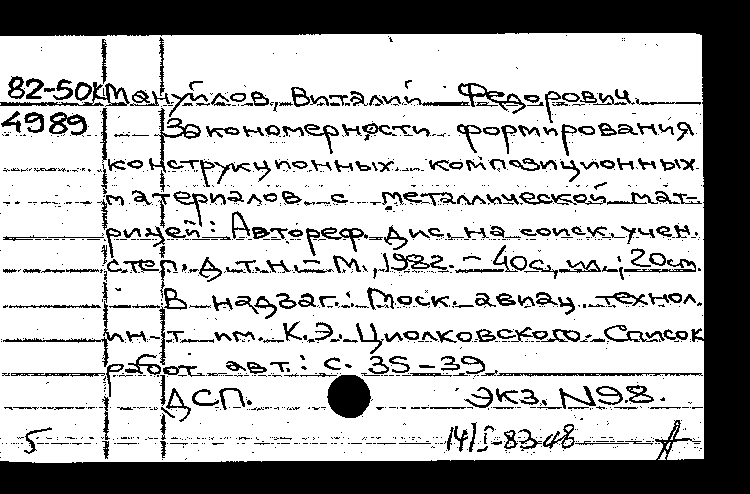 82-50к Мануйлов, Виталий Федорович.
4989 Закономерности формирования
конструкционных композиционных
материалов с металлической мат-
рицей: Автореф. дис. на соиск. учен.
степ. д.т.н. – М., 1982. – 40с., ил.; 20см.
В надзаг.: Моск. авиац. технол.
ин-т им. К.Э. Циолковского. Список
работ авт.: с. 35-39.
ДСП. Экз. №98.
5 14/I-83